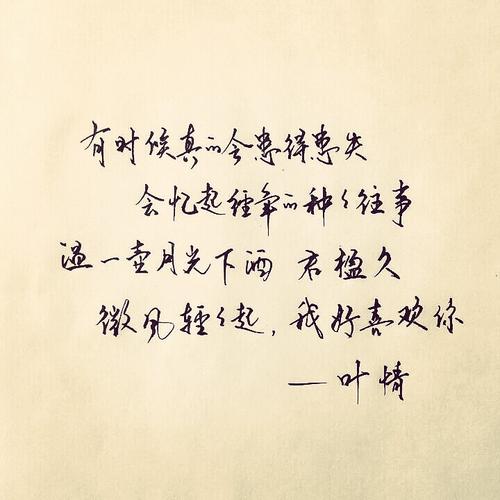 有时候真的会患得患失
会忆起经年的种种往事
温一壶月光下酒 君楹久
微风轻轻起,我好喜欢你
—叶情